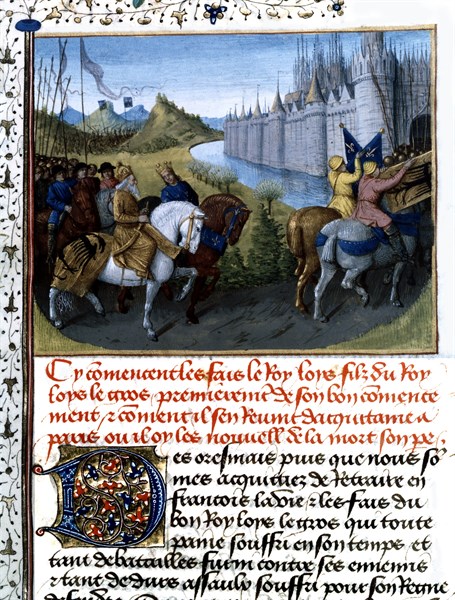 Cy comencent les fais le Roy loys filz du Roy
loys le gros, premierement de son bon commence
ment & coment il sen Reuint dacquitaine a
paris ou il oy les nouuell de la mort son pe
Des oresmais puis que nous so
mes acquitez de Retraire en
francois la vie & les fais du
bon Roy loys le gros qui toute
paine souffri en son temps et
tant de batailles fu&#773;t contre ses ennemis
& tant de durs assaulx souffri pour son Regne